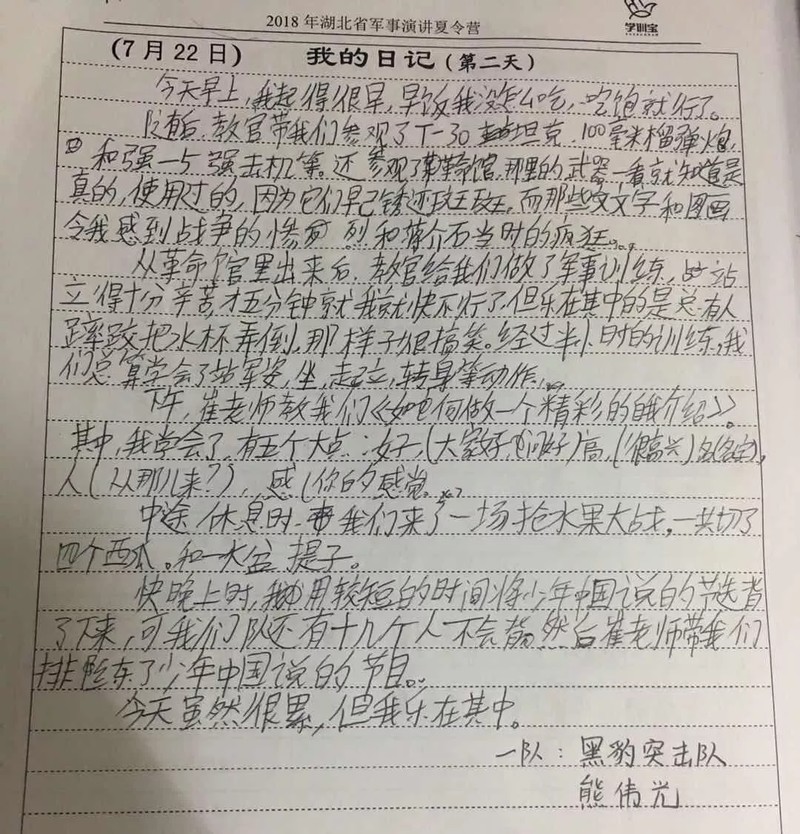 2018年湖北省军事演讲夏令营
学训宝
(7月22日) 我的日记(第二天)
今天早上,我起得很早,早饭我没怎么吃,吃饱就行了。
随后,教官带我们参观了T-30坦克,100毫米榴弹炮,
和强-5强击机等。还参观了革命馆,那里的武器一看就知道是
真的,使用过的,因为它们早已锈迹斑斑,而那些文字和图画
令我感到战争的惨烈和蒋介石当时的疯狂。
从革命官里出来后,教官给我们做了军事训练,站
立得十分辛苦,才五分钟就我就快不行了,但乐在其中的是总有人
蹿跤把水杯弄倒,那样子很搞笑。经过半小时的训练,我
们总算学会了站军姿,坐,起立,转身等动作。
下午,崔老师教我们《如何做一个精彩的自我介绍》。
其中,我学会了,有五个大点:好,(大家好,们好)高,(很高兴)名(名字),
人(从那儿来?),感(你的感觉。
中途休息时,我们来了一场抢水果大战,一共切了
四个西瓜。和一大盆提子。
快晚上时,我用较短的时间将少年中国说的节选背
了下来,可我们队还有十几个人不会背,然后崔老师带我们
排练了少年中国说的节目。
今天虽然很累,但我乐在其中。
一队:黑豹突击队
熊伟光